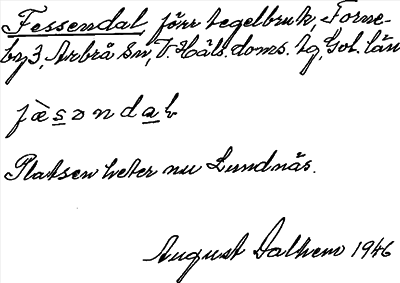 Fessendal, förr tegelbruk, Forne-
by 3, Arbrå sn, V. Häls. doms. tg, Gbl. län
fæ̀sɔndaL
Platsen heter nu Lundnäs.
August Dalhem 1946